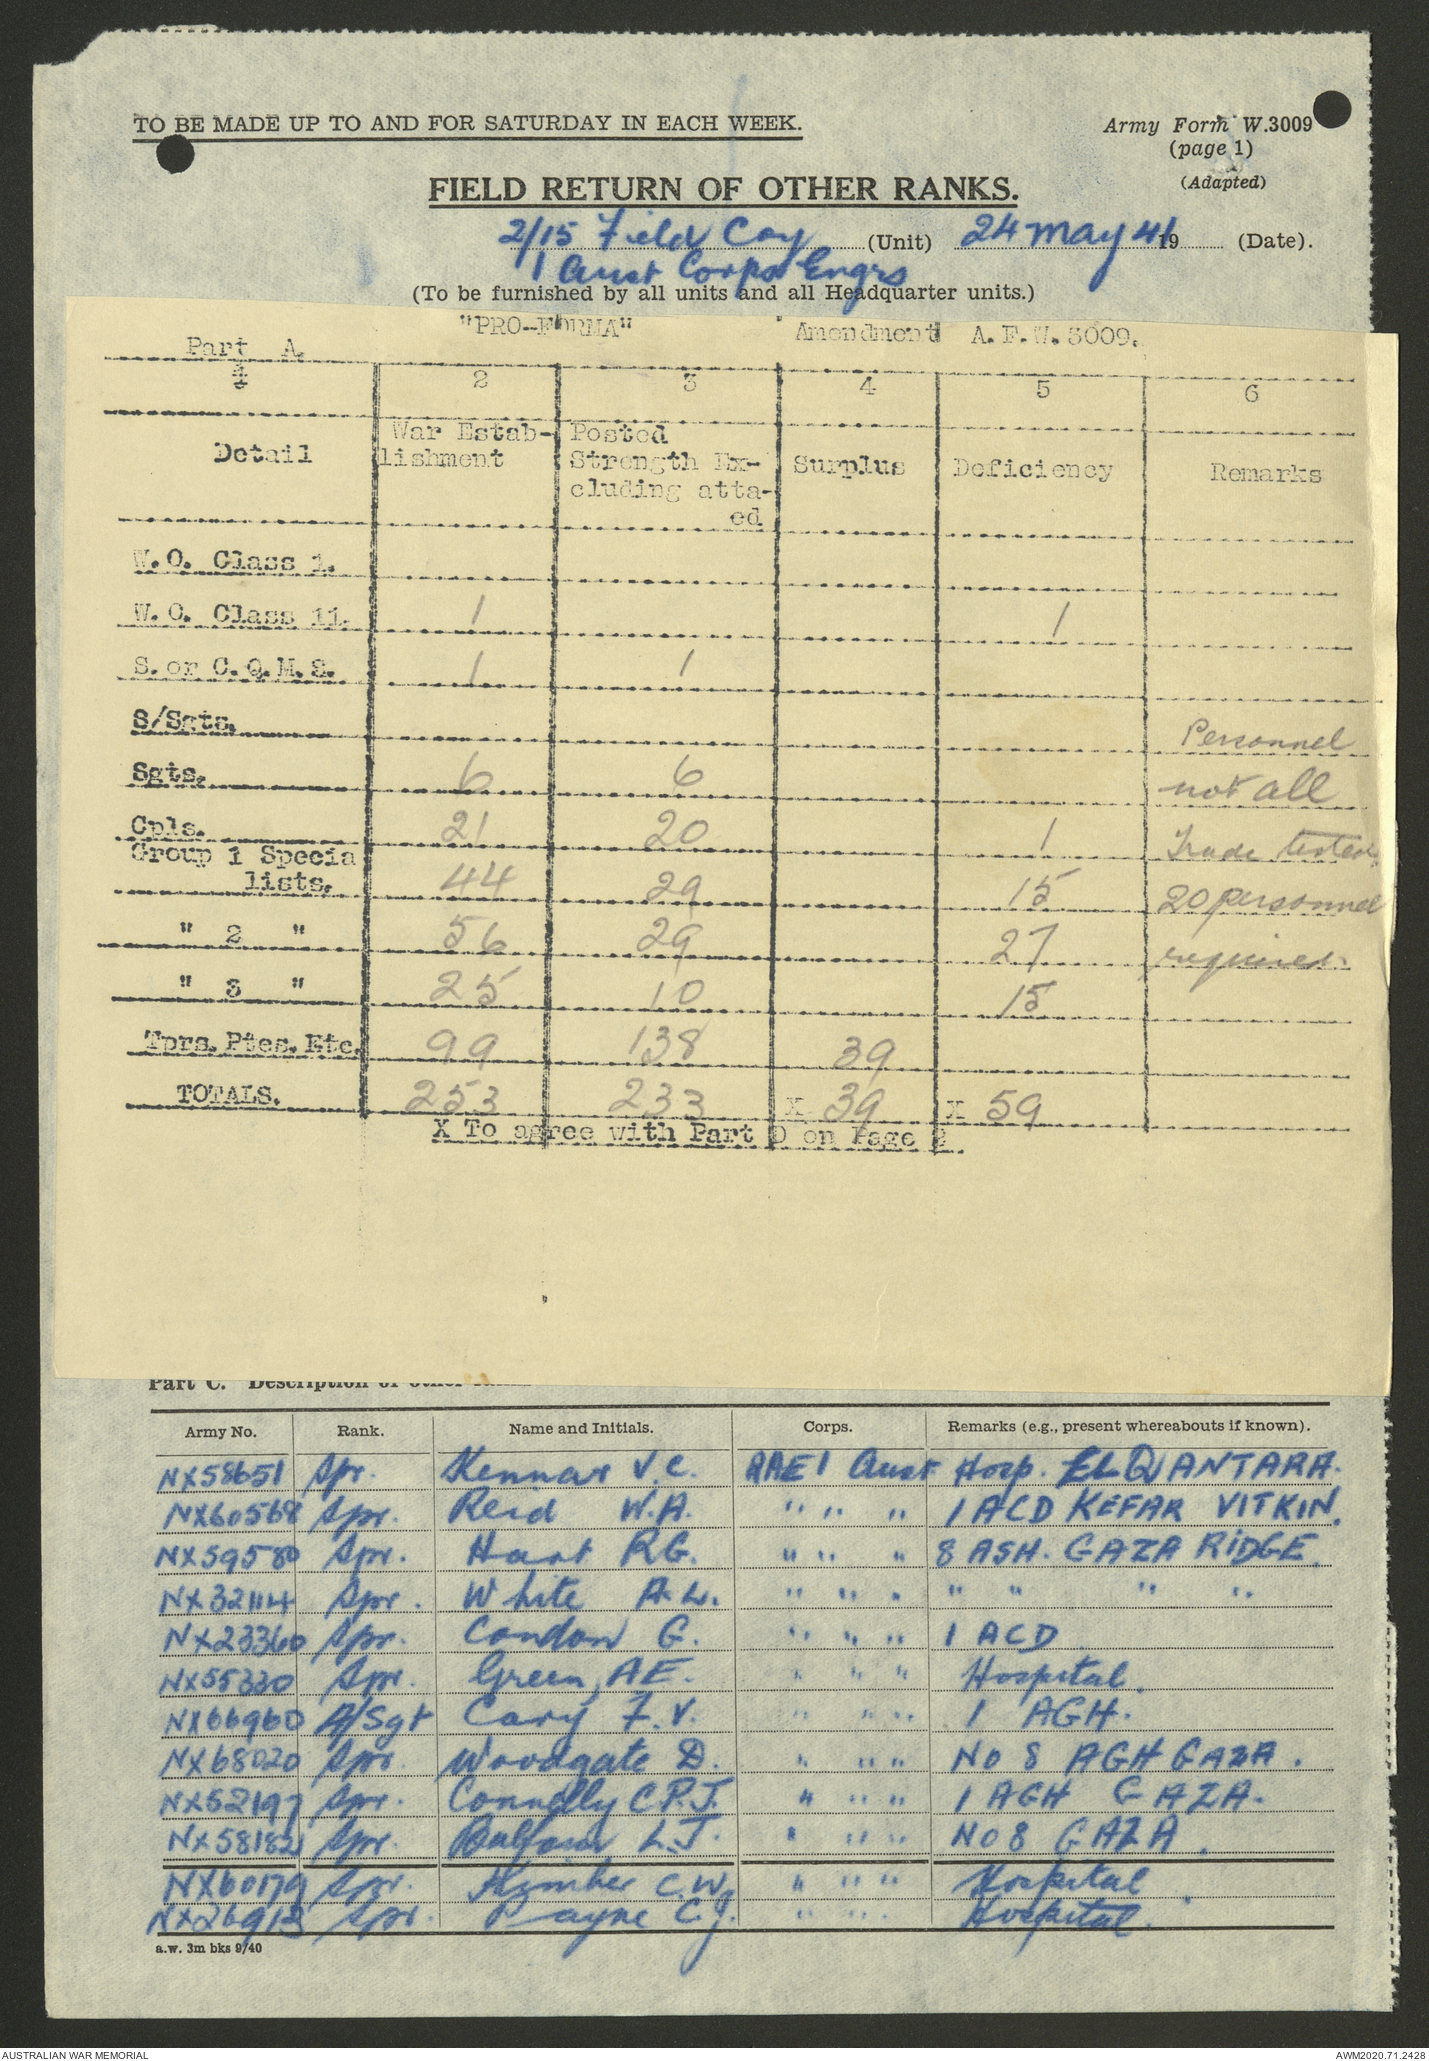 TO BE MADE UP TO AND FOR SATURDAY IN EACH WEEK.
Army Form W.3009
(page 1)
(Adapted)
FIELD RETURN OF OTHER RANKS.
2/15 Field Coy (Unit) 24 May 41 19 (Date).
1 Aust Corps Engrs
(To be furnished by all units and all Headquarter units.)
"PRO-FORMA" Amendment A.F.W. 3009.
Part A.
1 2 3 4 5 6
Detail War Estab-lishment Posted Strength Ex-cluding atta-ed Surplus Deficiency Remarks
W.O. Class 1.
W.O. Class 11. 1 1
S. or C.Q.M.S. 1 1
S/Sgts. Personnel
Sgts. 6 6 not all
Cpls. 21 20 1 Trade tested
Group 1 Specia
lists. 44 29 15 20 personnel
" 2 " 56 29 27 required.
" 3 " 25 10 15
Tprs. Ptes. Etc. 99 138 39
TOTALS. 253 233 X 39 X 59
X To agree with Part D on Page 2
Part C. Description of other
Army No. Rank. Name and Initials. Corps. Remarks (e.g., present whereabouts if known).
NX58651 Spr. Kennar V.C. RAE 1 Aust Hosp. EL QANTARA.
NX60568 Spr. Reid W.A. " " " 1 ACD KEFAR VITKIN.
NX59580 Spr. Hart R.G. " " " 8 ASH. GAZA RIDGE.
NX32114 Spr. White A.L. " " " " " " "
NX23360 Spr. Condon G. " " " 1 ACD
NX55330 Spr. Green, A.E. " " " Hospital.
NX66960 A/Sgt Cary F.V. " " " 1 AGH.
NX68020 Spr. Woodgate D. " " " NO 8 AGH GAZA.
NX52197 Spr. Connolly C.P.J. " " " 1 AGH GAZA.
NX58182 Spr. Balfour L.J. " " " NO 8 GAZA.
NX60179 Spr. Kimber C.W. " " " Hospital
NX26913 Spr. Payne C.J. " " " Hospital.
a.w. 3m bks 9/40
AUSTRALIAN WAR MEMORIAL AWM2020.71.2428